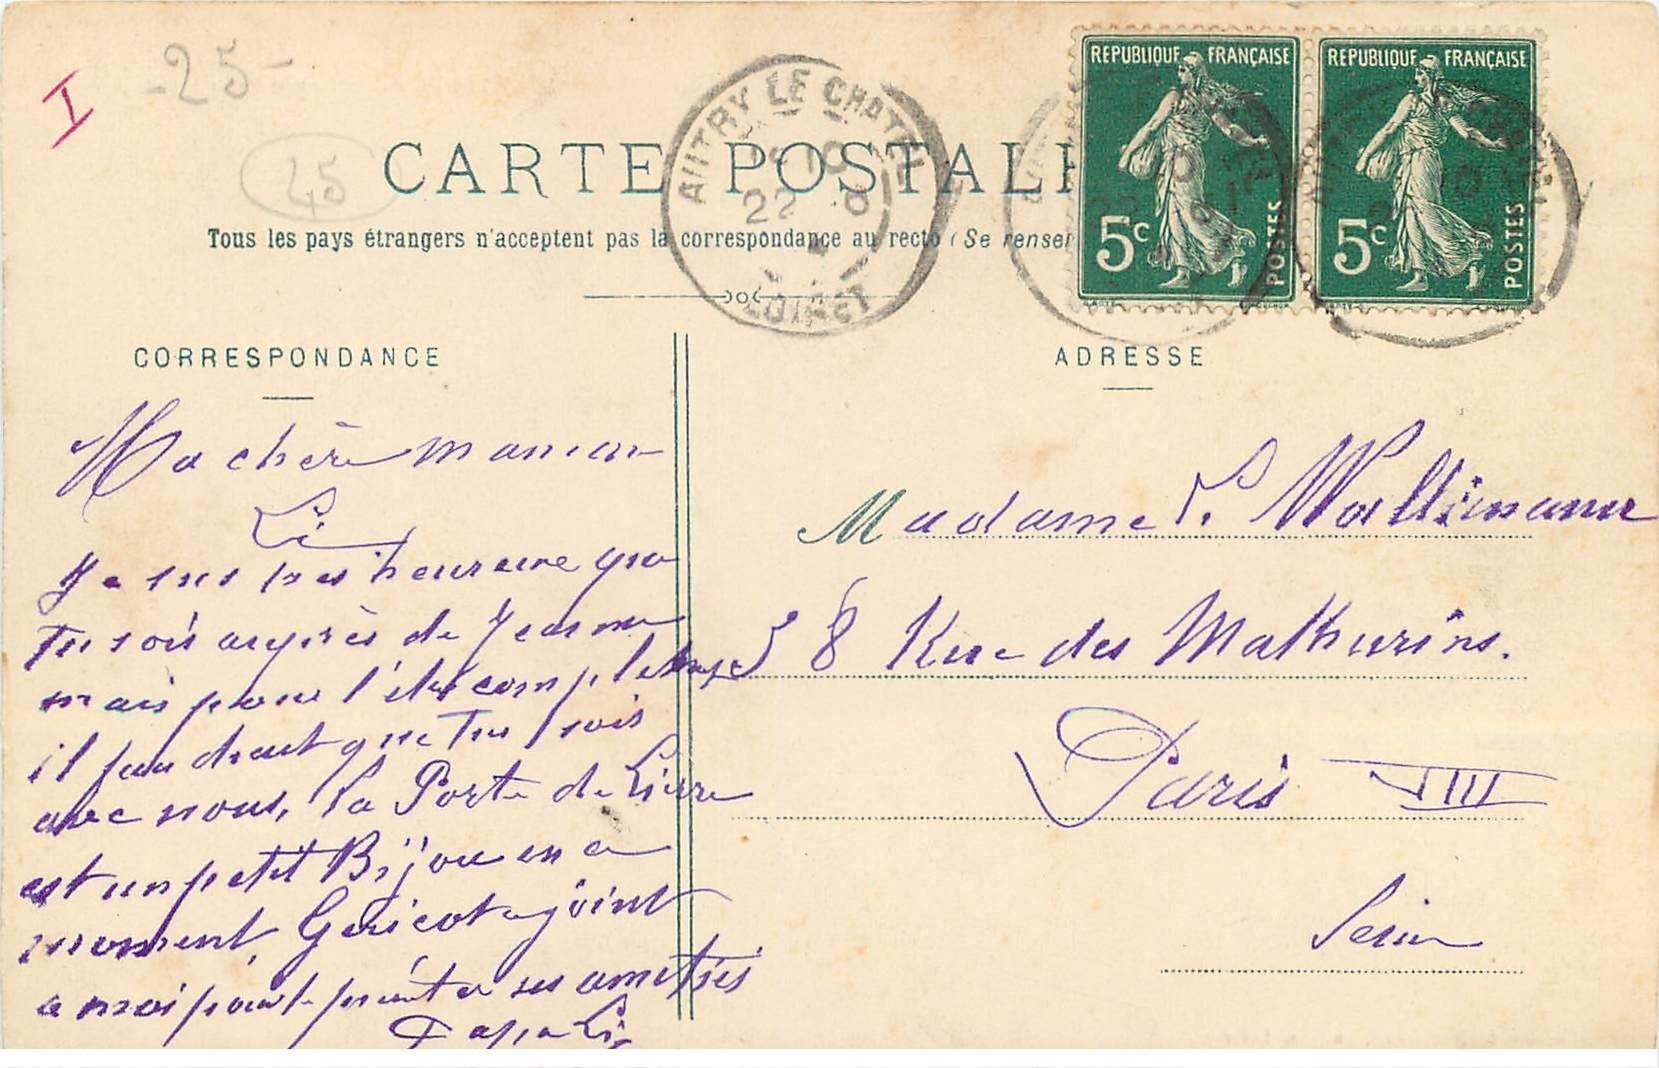 I
-25-
45
CARTE POSTAL
Tous les pays étrangers n'acceptent pas la correspondance au recto (Se renseı
AUTRY LE CHATEL
10
22
LOIRET
REPUBLIQUE FRANÇAISE
5c
POSTES
REPUBLIQUE FRANÇAISE
5c
POSTES
CORRESPONDANCE
Ma chère maman
Li
Je suis très heureuse que
Tu sois auprès de Jeanne
mais pour l'être complètement
il faudrait que Tu sois
avec nous, La Porte de Lierre
est un petit Bijou en ce
moment, Géricot ajoint
a moi pour te présenter ses amitiés
Papa Li
ADRESSE
Madame L. Wallimann
58 Rue des Mathurins.
Paris VIII
Seine